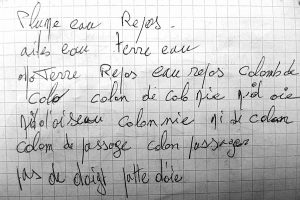 Plume eau Repos.
ailes eau terre eau
Terre Repos eau repos Colombe de
Colo colin di colo Nie nid oie
Nid d'oiseau colom nie ni di colom
colom de passage colom passager
pas de doigt patte d'oie